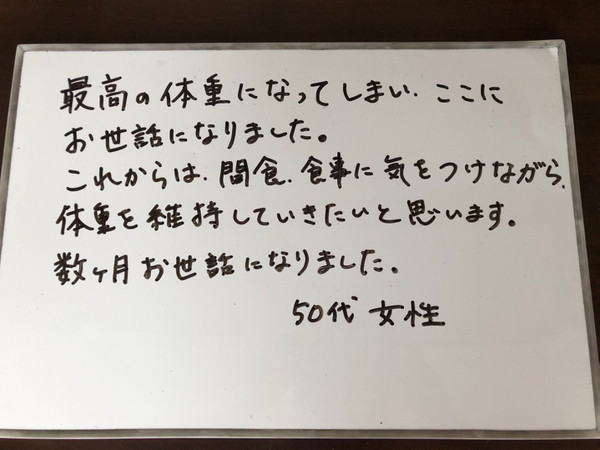 最高の体重になってしまい、ここに
お世話になりました。
これからは、間食、食事に気をつけながら、
体重を維持していきたいと思います。
数ヶ月お世話になりました。
50代 女性